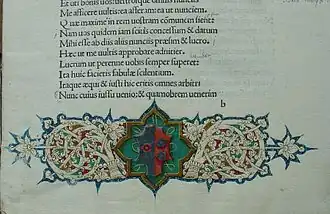 Et uti bonis uostros uostrosque omnis nunciis
Me afficere uultis: ea afferam: ea ut nunciem.
Quae maxime in rem uostram cōmunem sient:
Nam uos quidem iam scitis concessum & datum
Mihi esse ab diis aliis nunciis praesim & lucro.
Haec ut me uultis approbare adnitier:
Lucrum ut perenne uobis semper superet:
Ita huic facietis fabulae silentium.
Itaque aequi & iusti hic eritis omnes arbitri
Nunc cuius iussu uenio: & quamobrem uenerim
b